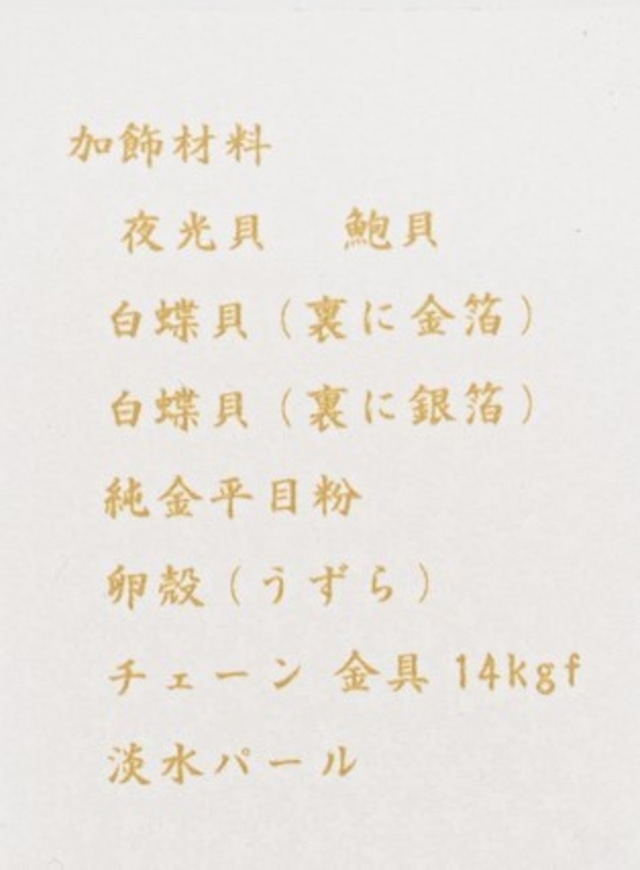 加飾材料
夜光貝　鮑貝
白蝶貝（裏に金箔）
白蝶貝（裏に銀箔）
純金平目粉
卵殻（うずら）
チェーン 金具 14kgf
淡水パール